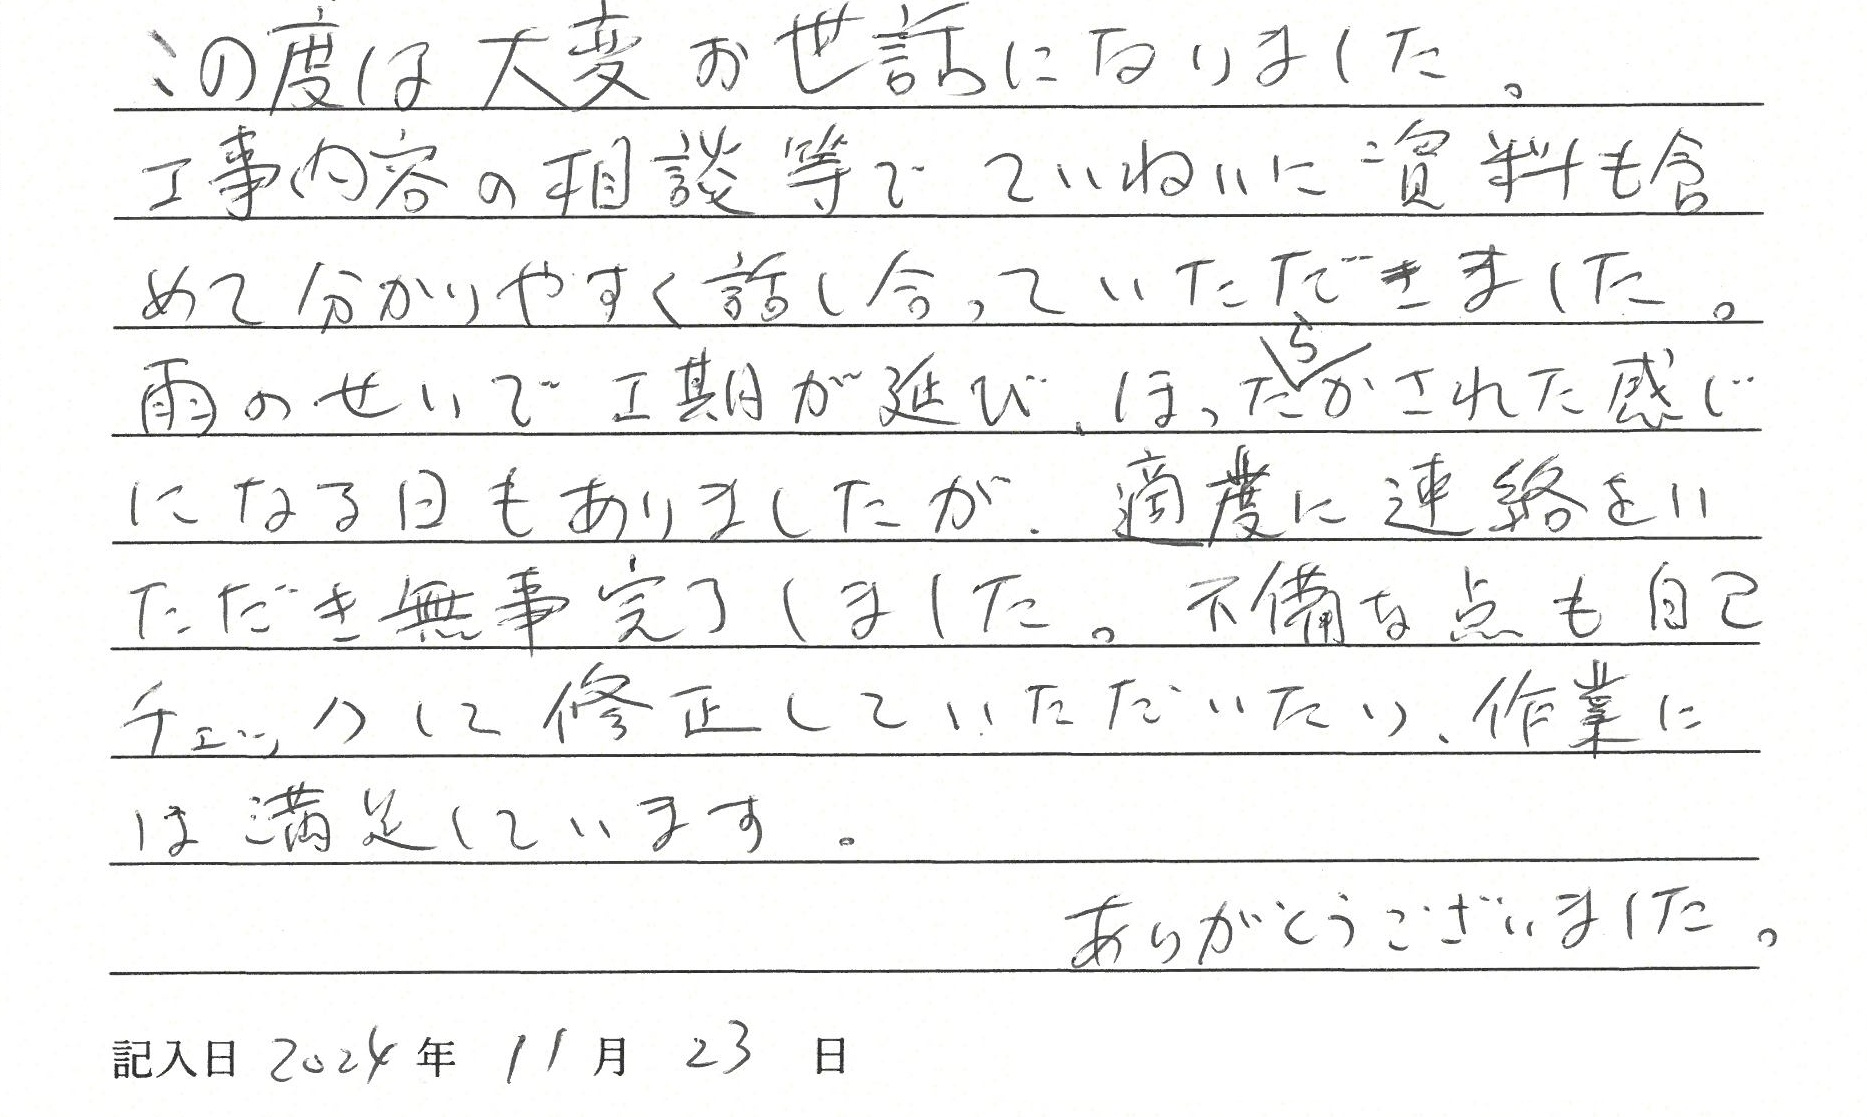 この度は大変お世話になりました。
工事内容の相談等でていねいに資料も含
めて分かりやすく話し合っていただきました。
雨のせいで工期が延び、ほったらかされた感じ
になる日もありましたが、適度に連絡をい
ただき無事完了しました。不備な点も自己
チェックして修正していただいたり、作業に
は満足しています。
ありがとうございました。
記入日 2024年 11月 23日